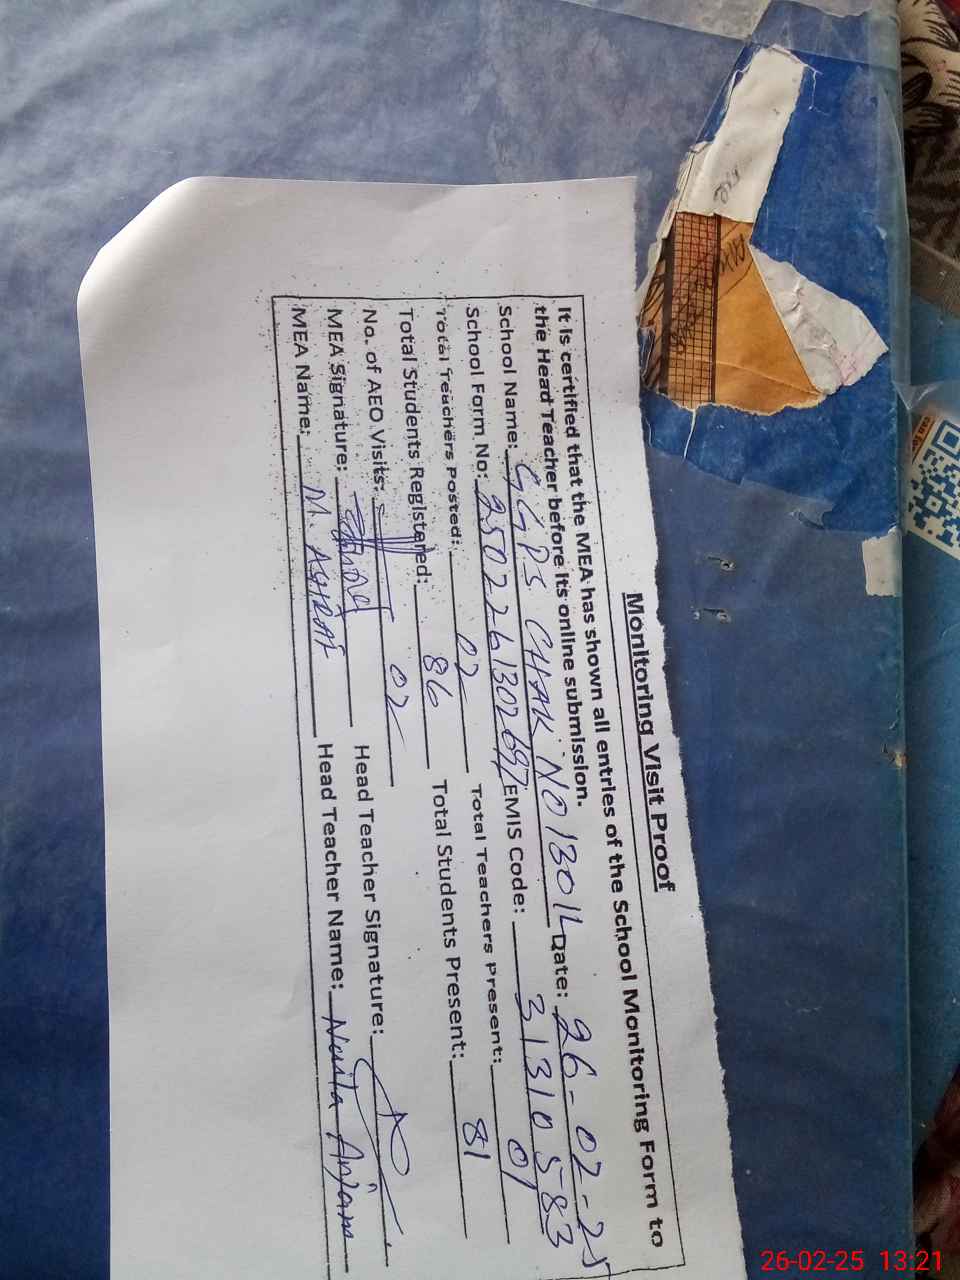 Monitoring Visit Proof
It is certified that the MEA has shown all entries of the School Monitoring Form to
the Head Teacher before its online submission.
School Name: GGPS CHAK NO 130 1L Date: 26-02-25
School Form No: 2502261302697 EMIS Code: 31310583
Total Teachers Posted: 02 Total Teachers Present: 01
Total Students Registered: 86 Total Students Present: 81
No. of AEO Visits: 02
MEA Signature: Head Teacher Signature:
MEA Name: M. ASHRAF Head Teacher Name: Navila Anjam
26-02-25 13:21